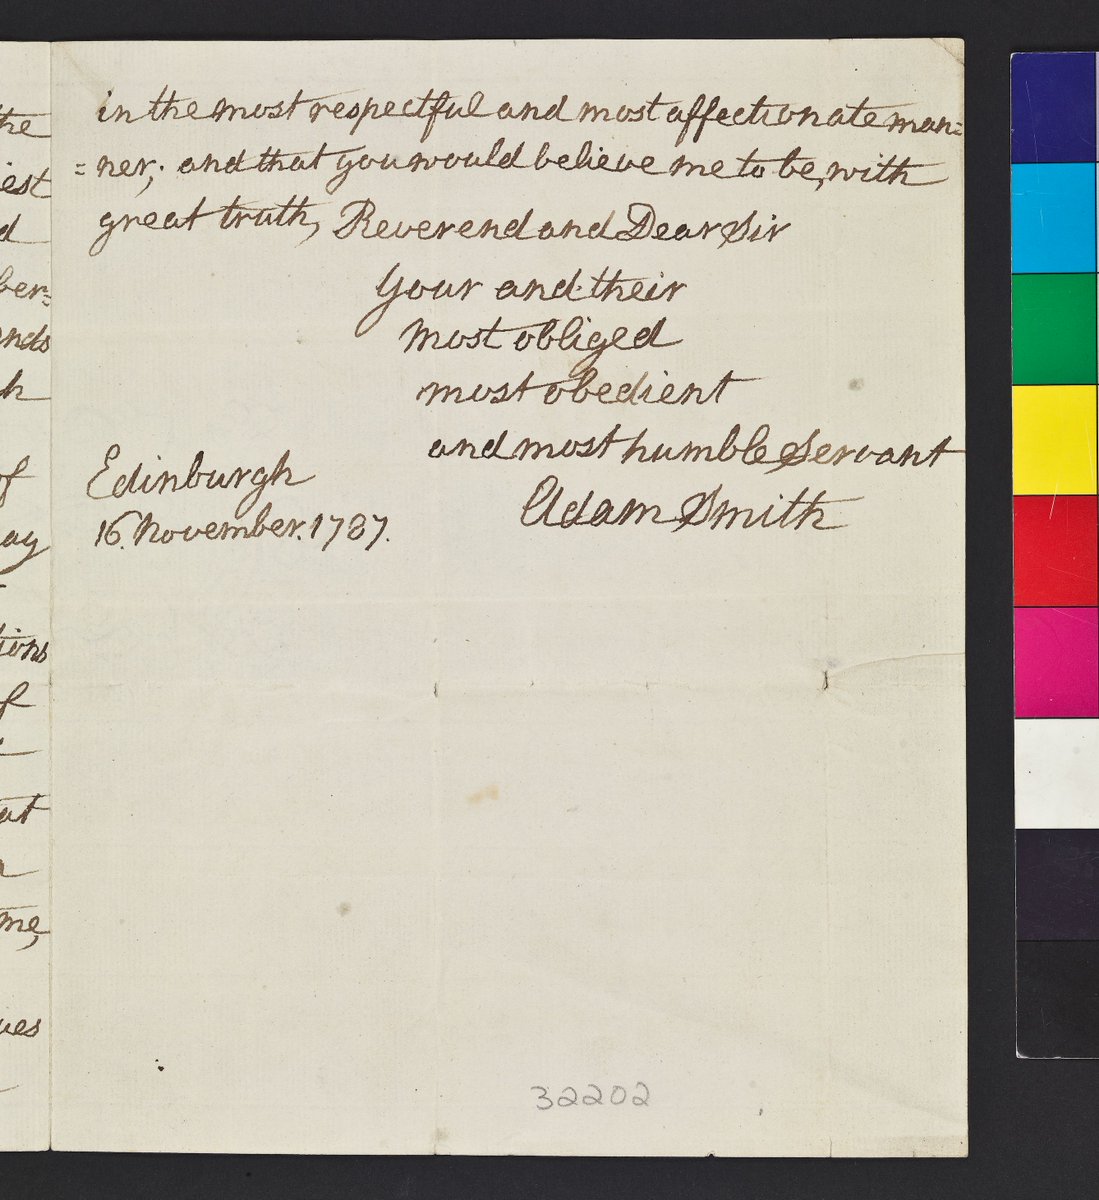 in the most respectful and most affectionate man=
=ner; and that you would believe me to be, with
great truth, Reverend and Dear Sir
Your and their
most obliged
most obedient
and most humble Servant
Adam Smith
Edinburgh
16. November. 1787.
32202
the
iest
d
ber=
ands
h
of
ay
tions
of
at
me,
ues